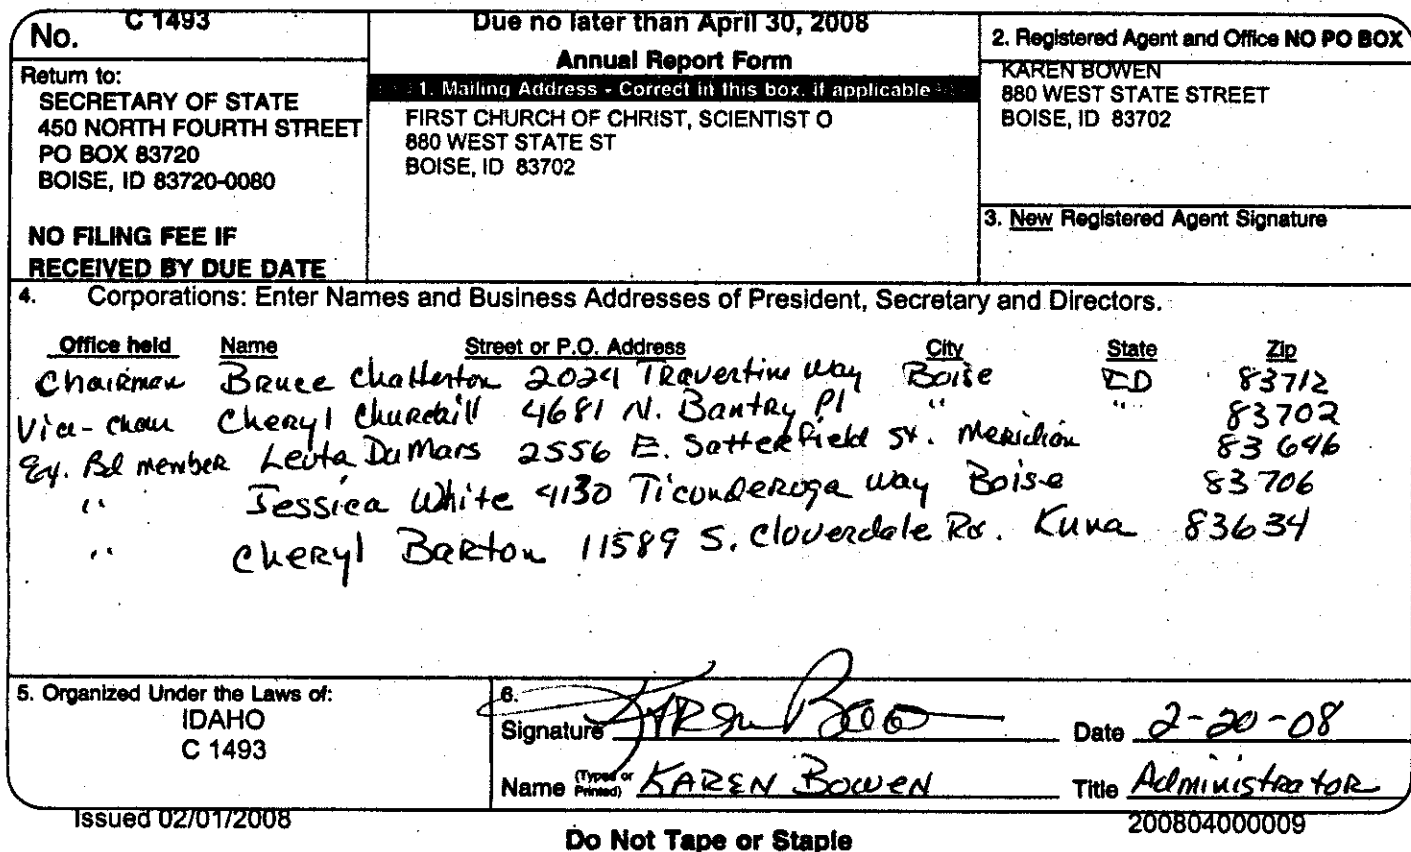 No. C 1493
Return to:
SECRETARY OF STATE
450 NORTH FOURTH STREET
PO BOX 83720
BOISE, ID 83720-0080
NO FILING FEE IF
RECEIVED BY DUE DATE
Due no later than April 30, 2008
Annual Report Form
1. Mailing Address - Correct in this box, if applicable
FIRST CHURCH OF CHRIST, SCIENTIST O
880 WEST STATE ST
BOISE, ID 83702
2. Registered Agent and Office NO PO BOX
KAREN BOWEN
880 WEST STATE STREET
BOISE, ID 83702
3. New Registered Agent Signature
4. Corporations: Enter Names and Business Addresses of President, Secretary and Directors.
Office held Name Street or P.O. Address City State Zip
Chairman Bruce Chatterton 2024 Travertine Way Boise ID 83712
Vice-Chair Cheryl Churchill 4681 N. Bantry Pl " " 83702
Ex. Bd member Leota DuMars 2556 E. Satterfield St. Meridian 83646
" Jessica White 4130 Ticonderoga Way Boise 83706
" Cheryl Barton 11589 S. Cloverdale Rd. Kuna 83634
5. Organized Under the Laws of:
IDAHO
C 1493
6.
Signature Karen Bowen Date 2-20-08
Name (Typed or Printed) KAREN BOWEN Title Administrator
Issued 02/01/2008
Do Not Tape or Staple
200804000009